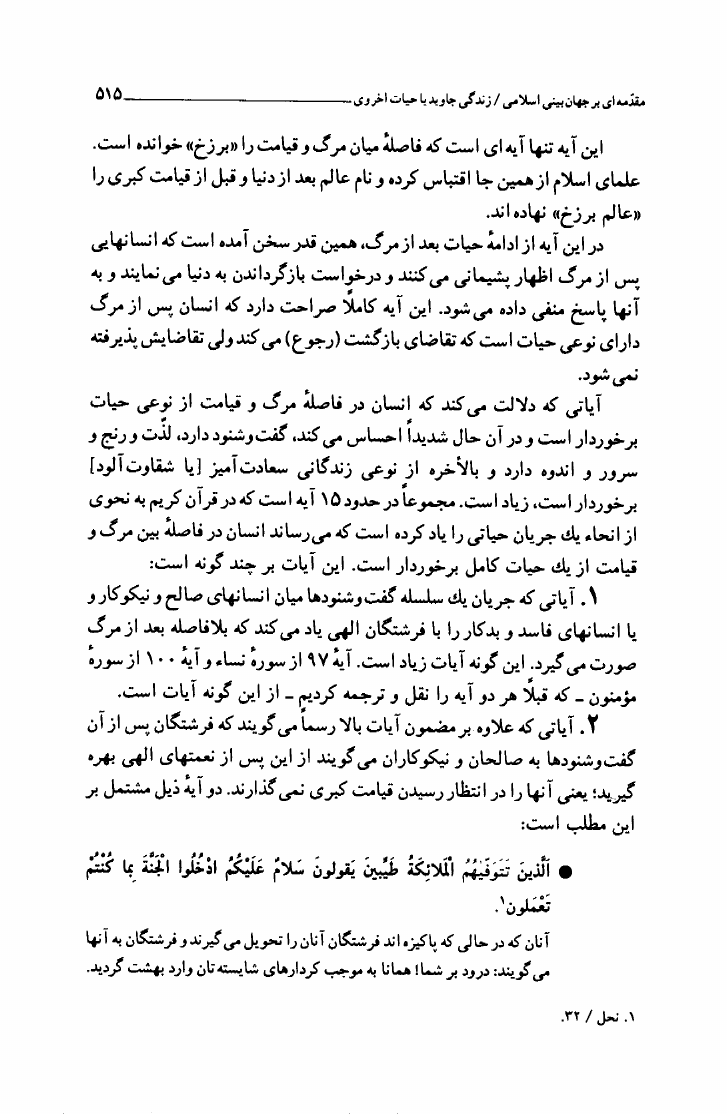 مقدّمه‌ای بر جهان‌بینی اسلامی / زندگی جاوید یا حیات اخروی ۵۱۵
این آیه تنها آیه‌ای است که فاصلهٔ میان مرگ و قیامت را «برزخ» خوانده است.
علمای اسلام از همین جا اقتباس کرده و نام عالم بعد از دنیا و قبل از قیامت کبری را
«عالم برزخ» نهاده‌اند.
در این آیه از ادامهٔ حیات بعد از مرگ، همین قدر سخن آمده است که انسانهایی
پس از مرگ اظهار پشیمانی می‌کنند و درخواست بازگرداندن به دنیا می‌نمایند و به
آنها پاسخ منفی داده می‌شود. این آیه کاملاً صراحت دارد که انسان پس از مرگ
دارای نوعی حیات است که تقاضای بازگشت (رجوع) می‌کند ولی تقاضایش پذیرفته
نمی‌شود.
آیاتی که دلالت می‌کند که انسان در فاصلهٔ مرگ و قیامت از نوعی حیات
برخوردار است و در آن حال شدیداً احساس می‌کند، گفت‌وشنود دارد، لذّت و رنج و
سرور و اندوه دارد و بالأخره از نوعی زندگانی سعادت‌آمیز [یا شقاوت‌آلود]
برخوردار است، زیاد است. مجموعاً در حدود ۱۵ آیه است که در قرآن کریم به نحوی
از انحاء یك جریان حیاتی را یاد کرده است که می‌رساند انسان در فاصلهٔ بین مرگ و
قیامت از یك حیات کامل برخوردار است. این آیات بر چند گونه است:
۱. آیاتی که جریان یك سلسله گفت‌وشنودها میان انسانهای صالح و نیکوکار و
یا انسانهای فاسد و بدکار را با فرشتگان الهی یاد می‌کند که بلافاصله بعد از مرگ
صورت می‌گیرد. این گونه آیات زیاد است. آیهٔ ۹۷ از سورهٔ نساء و آیهٔ ۱۰۰ از سورهٔ
مؤمنون ـ که قبلاً هر دو آیه را نقل و ترجمه کردیم ـ از این گونه آیات است.
۲. آیاتی که علاوه بر مضمون آیات بالا رسماً می‌گویند که فرشتگان پس از آن
گفت‌وشنودها به صالحان و نیکوکاران می‌گویند از این پس از نعمتهای الهی بهره
گیرید؛ یعنی آنها را در انتظار رسیدن قیامت کبری نمی‌گذارند. دو آیهٔ ذیل مشتمل بر
این مطلب است:
● اَلَّذینَ تَتَوَفّیهُمُ الْمَلائِکَةُ طَیِّبینَ یَقولونَ سَلامٌ عَلَیْکُمُ ادْخُلُوا الْجَنَّةَ بِما کُنْتُمْ
تَعْمَلون۱.
آنان که در حالی که پاکیزه‌اند فرشتگان آنان را تحویل می‌گیرند و فرشتگان به آنها
می‌گویند: درود بر شما! همانا به موجب کردارهای شایسته‌تان وارد بهشت گردید.
۱. نحل / ۳۲.